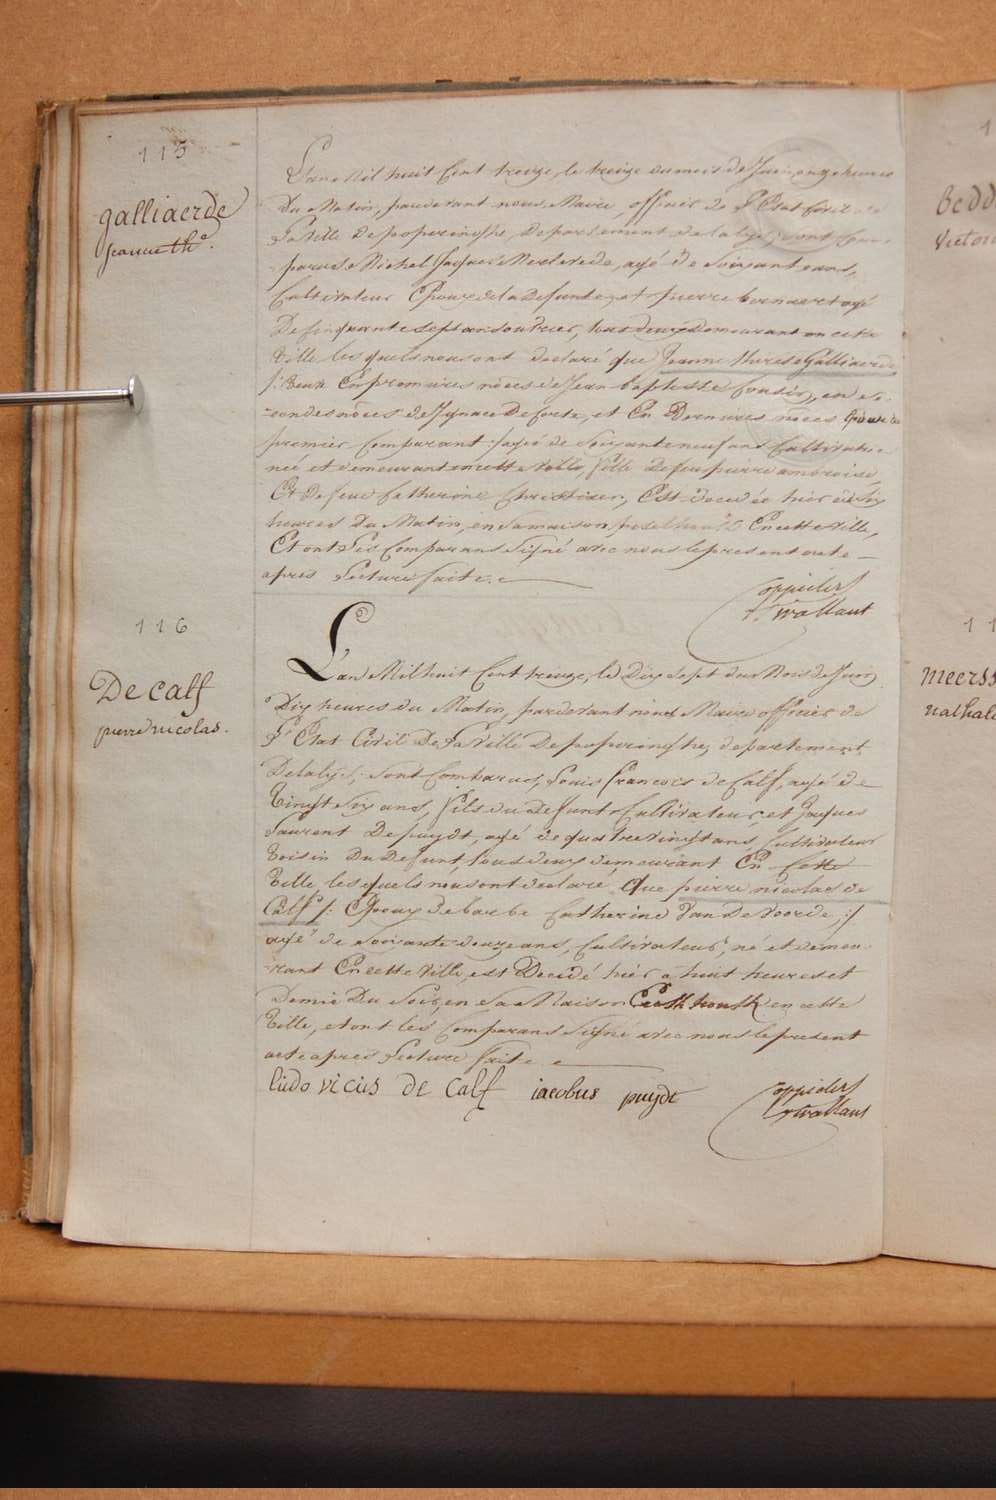 115
galliaerde
jeanne the.
L'an Mil huit Cent treize, le treize du mois de Juin, onze heures
du Matin, pardevant nous Maire, officier de L'Etat Civil de
La Ville de poperinghe, departement de la lys, sont Com-
parus Michel Jaques agé de Soixante ans,
Cultivateur Epoux de la defunte, et pierre agé
De Cinquante Sept ans ouvrier, tous deux demeurant en cette
Ville, les quels nous ont declaré que Jeanne therese Galliaerde
/: veuve En premieres nôces de Jean baptiste en se-
-condes nôces d'Ignace Deforte, et En Dernieres nôces Epouse du
premier Comparant :/ agée de Soixante neuf ans Cultivatrice
née et demeurant en cette Ville, fille de feu pierre ambroise,
Et De feue Catherine Est decedée hier à Six
heures Du Matin, en Sa maison En cette Ville,
Et ont Les Comparans Signé avec nous le present acte
apres Lecture faite.
116
De Calf
pierre nicolas.
L'an Mil huit Cent treize, le Dix Sept du Mois de Juin
Dix heures du Matin, pardevant nous Maire officier de
L'Etat Civil De La Ville De poperinghe, departement
De la lys, sont Comparus, Louis francois de Calf, agé de
Vingt Six ans, fils du defunt Cultivateur, et Jaques
Laurent Depuydt, agé de quatre vingt ans, Cultivateur
Voisin Du Defunt, tous deux demeurant En Cette
Ville, les quels nous ont declaré que pierre nicolas de
Calf /: Epoux de barbe Catherine Van De Voorde, :/
agé de Soixante douze ans, Cultivateur, né et demeu-
-rant En cette Ville, est Decedé hier à huit heures et
Demie Du Soir, en Sa Maison en cette
Ville, et ont les Comparans Signé avec nous le present
acte apres Lecture faite
ludovicus de Calf iacobus puydt
11
Bedd
Victoir
11
meerss
nathali